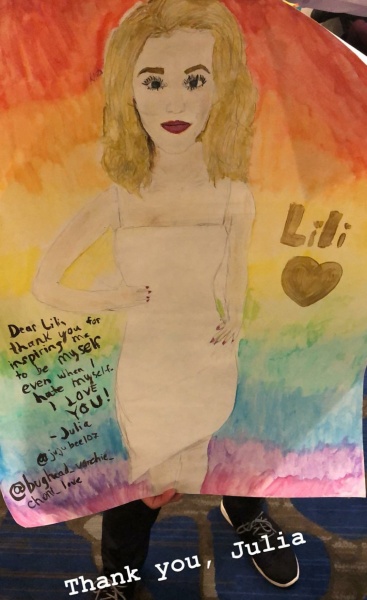 Lili
Dear Lili,
thank you for
inspiring me
to be myself
even when I
hate myself.
I LOVE
YOU!
- Julia
@jujubee102
Thank you, Julia